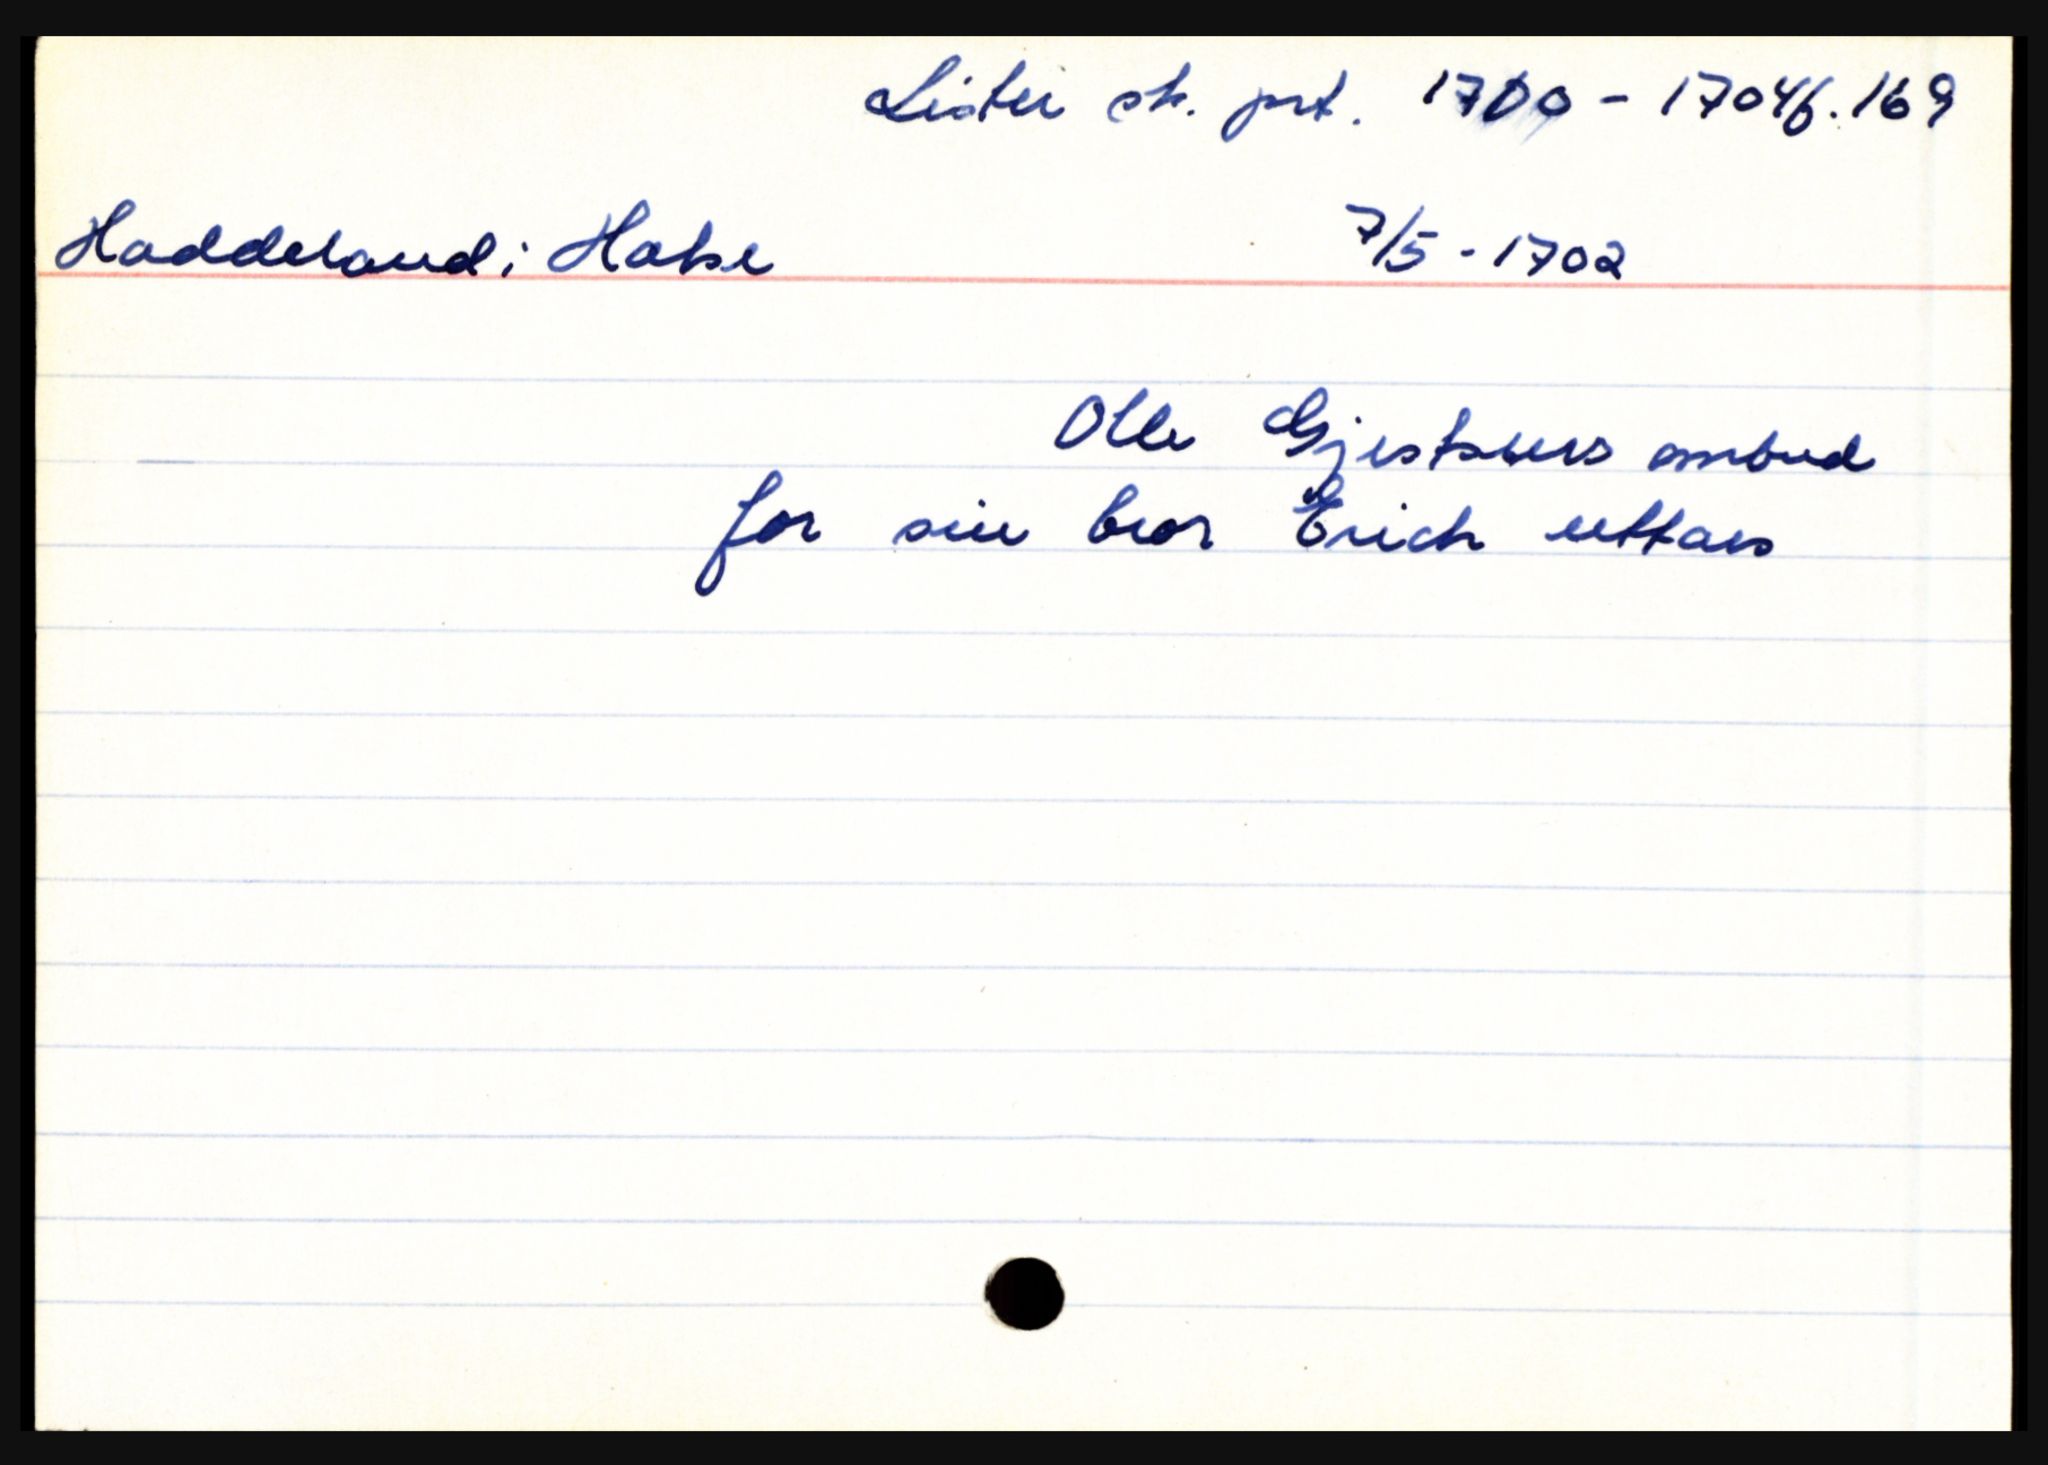 Lister sk. prt. 1700 - 1704 f. 169
Haddeland i Hakse 7/5 - 1702
Olle ombud
for sin bror Erich